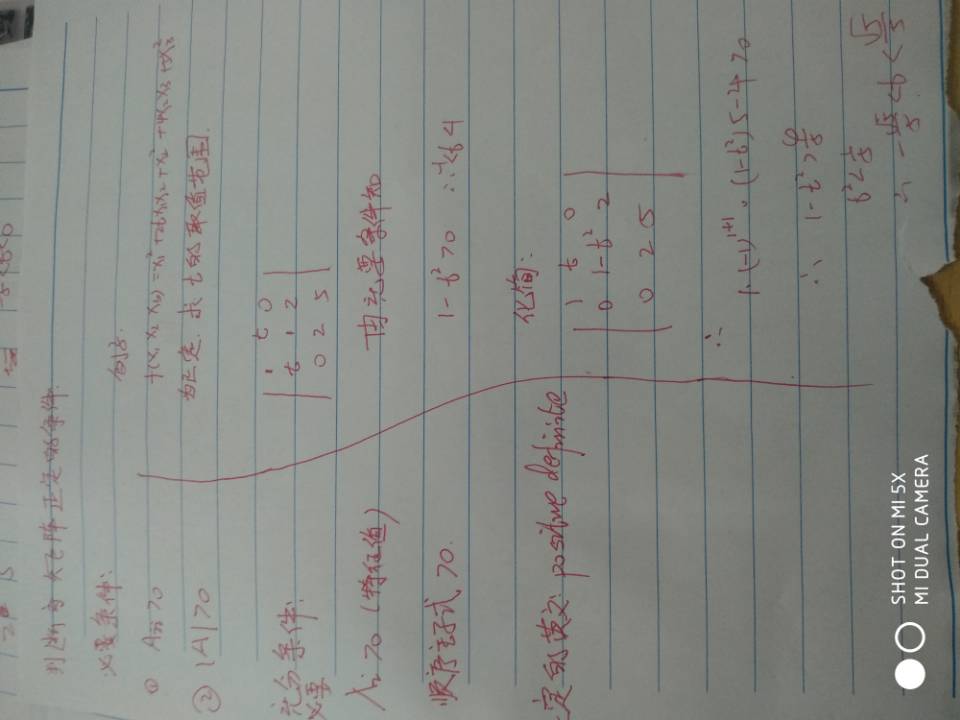 判断方式矩阵正定的条件:
必要条件:
① Aii>0
② |A|>0
充分
必要
条件:
λi>0 (特征值)
顺序主子式>0.
定的英文: positive definite
例:
f(x₁ x₂ x₃) = x₁² + 2t x₁x₂ + x₂² + 4x₂x₃ + 5x₃²
为正定. 求 t 的取值范围.
1 t 0
t 1 2
0 2 5
由充要条件知
1-t²>0
化简:
1 t 0
0 1-t² 2
0 2 5
∴ 1·(-1)¹⁺¹·(1-t²)5-4>0
∴ 1-t²>4/5
t²<1/5
∴ -√5/5<t<√5/5
SHOT ON MI 5X
MI DUAL CAMERA